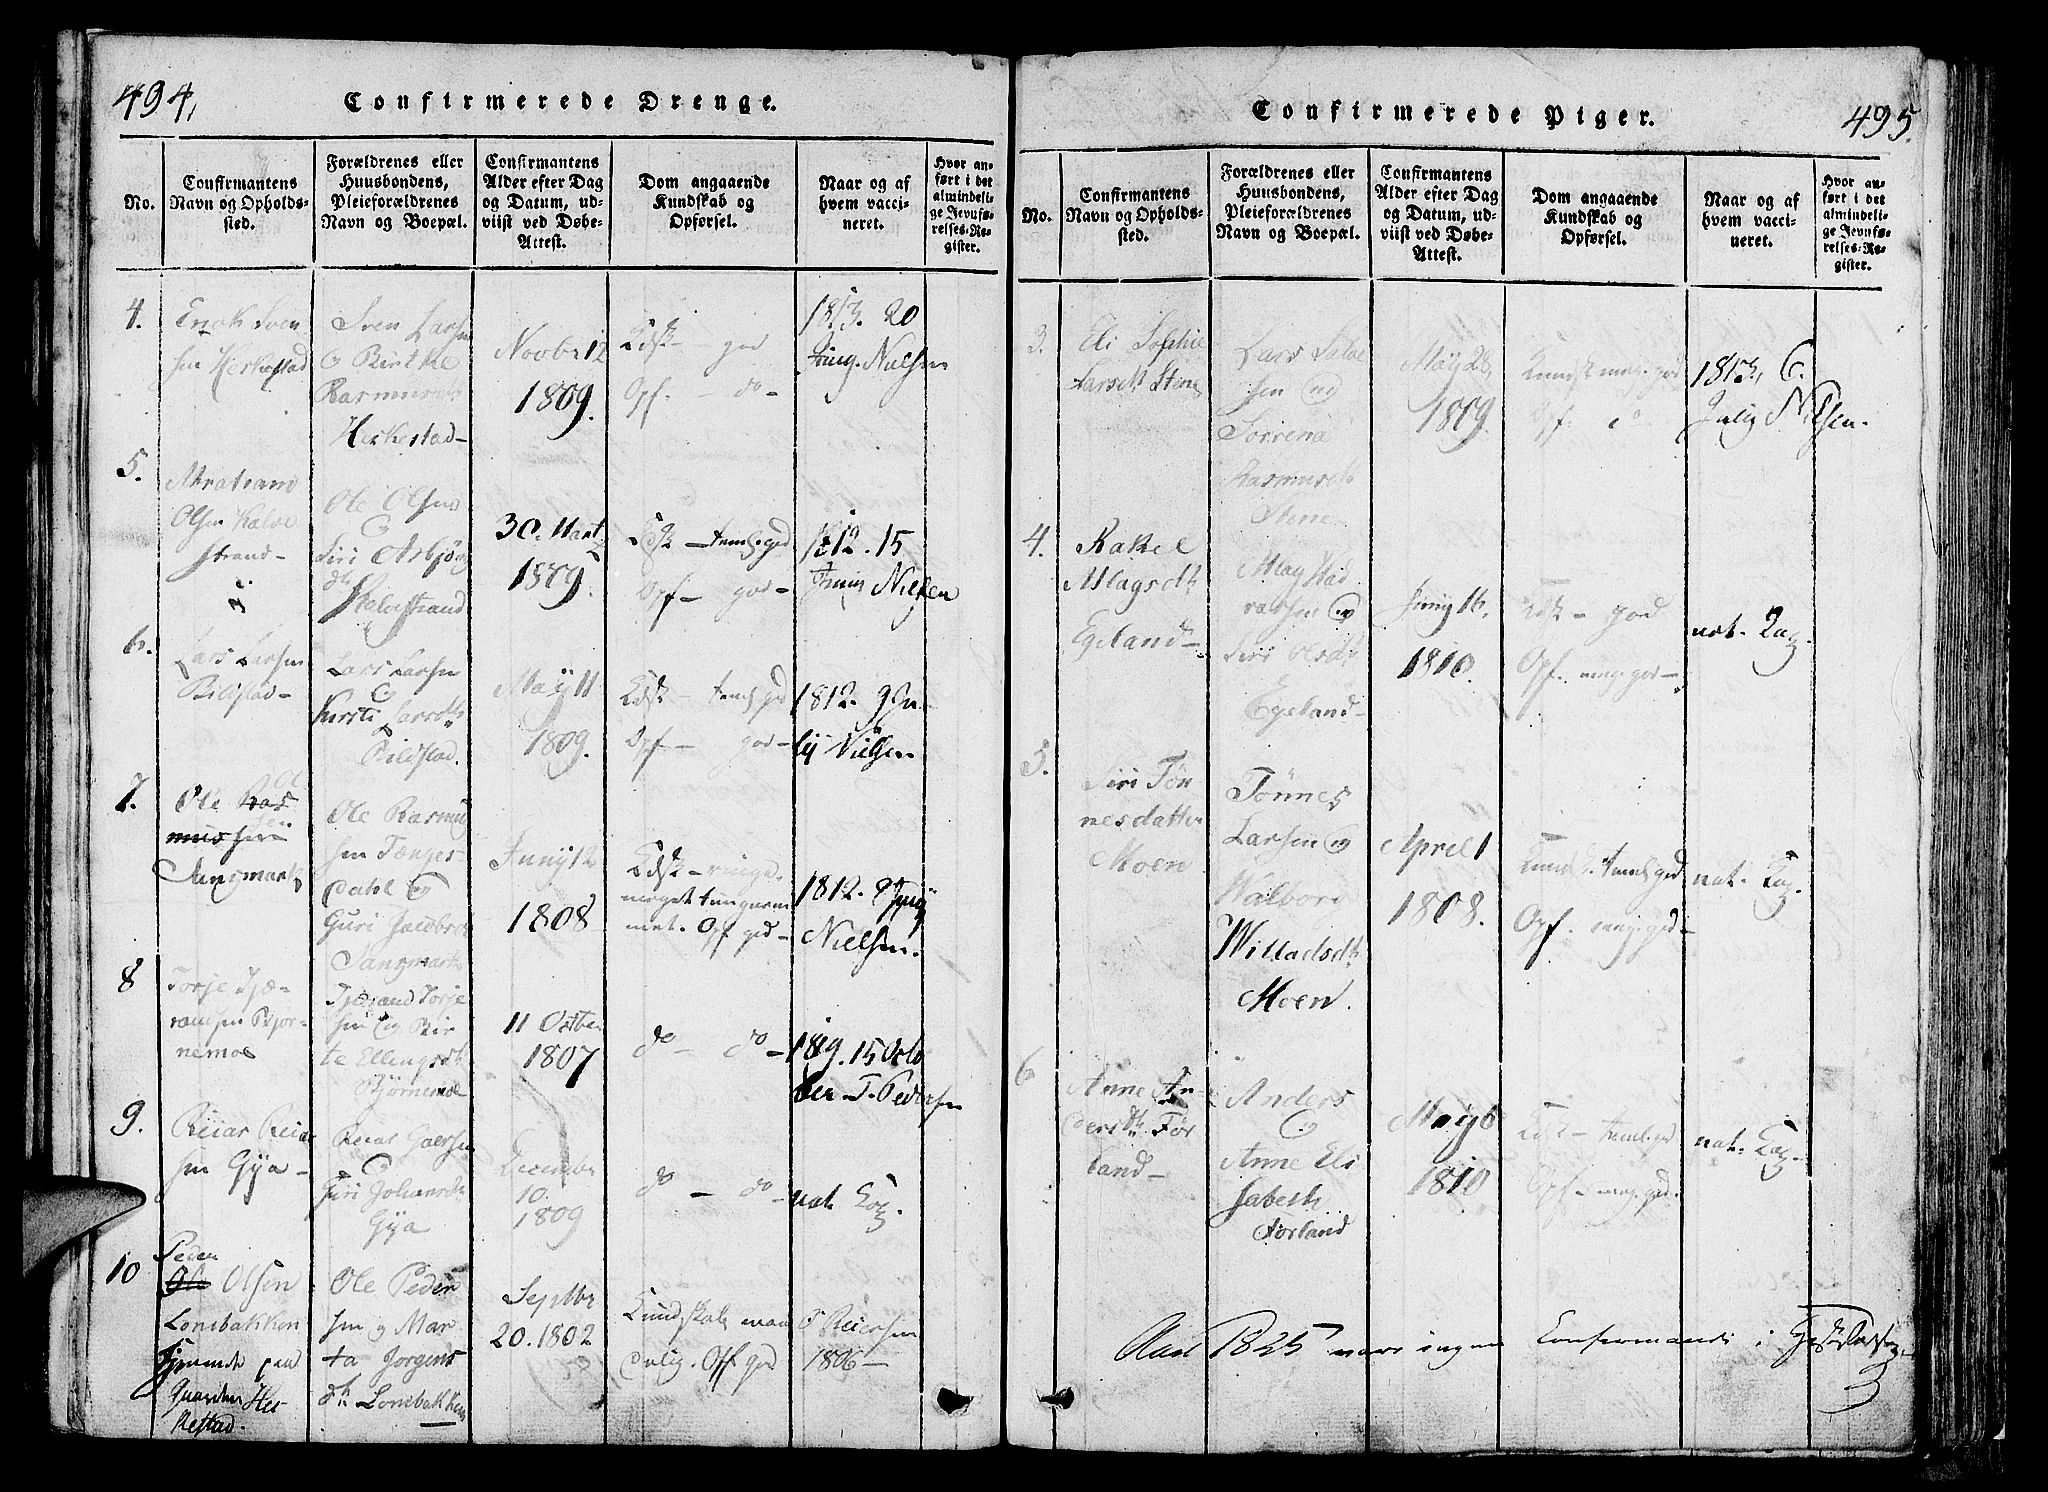 494,
Confirmerede Drenge.
No.
Confirmantens
Navn og Opholds-
sted.
Forældrenes eller
Huusbondens,
Pleieforældrenes
Navn og Boepæl.
Confirmantens
Alder efter Dag
og Datum, ud-
viist ved Døbe-
Attest.
Dom angaaende
Kundskab og
Opførsel.
Naar og af
hvem vacci-
neret.
Hvor an-
ført i det
almindeli-
ge Jevnfø-
relses-Re-
gister.
4.
Erick Sven
sen Herkestad
Sven Larsen
og Birthe
Rasmusdt
Herkestad-
Novbr 12
1809.
Kdsk - god
Opf. - do -
1813. 20
Nielsen
5.
Olsen Kalve
strand-
Ole Olsen
og
Siri Asbjørg
dt
Kalvestrand
30. Mart
1809.
Kdsk - teml. god
Opf - god-
1812. 15
Juny Nielsen
6.
Lars Larsen
Bilestad-
Lars Larsen
og
Kirsti Larsdt
Bilestad.
May 11
1809.
Kdsk - teml. god
Opf - god-
1812. 9 Ju-
ly Nielsen
7.
Ole Ras
mussen
Ole Rasmus
sen Tænges
dahl og
Guri Jacobsd
Juny 12
1808
Kdsk - ringe,
meget tungnem
met. Opf. god-
1812. 9 July
Nielsen.
8
Torje Tjæ-
randsen Bjor-
nemoe
Tjerand Torje
sen og Bir
te Ellingsdt
Bjørnemoe
11 Octbr
1807
do - do -
1819. 15 Octo
ber T. Pedersen
9.
Reiar Reiar
sen Gya-
Reiar Goersen
og
Siri Johannesdt
Gya
Decembr
10.
1809
do - do -
nat. Kop.
10
Peder
Ole Olsen
Lonebakken
tjenende paa
Her-
kestad.
Ole Peder
sen og Mar
ta Jorgens
dt Lonebakken
Septbr
20. 1802
Kundskab maa
delig. Opf god
O Reiersen
1806-
495.
Confirmerede Piger.
No.
Confirmantens
Navn og Opholds-
sted.
Forældrenes eller
Huusbondens,
Pleieforældrenes
Navn og Boepæl.
Confirmantens
Alder efter Dag
og Datum, ud-
viist ved Døbe-
Attest.
Dom angaaende
Kundskab og
Opførsel.
Naar og af
hvem vacci-
neret.
Hvor an-
ført i det
almindeli-
ge Jevnfø-
relses-Re-
gister.
3.
Eli Sophie
Larsdt Stene
Lars Salve
sen og
Sorrena
Rasmusdt
Stene
May 28
1809.
Kundsk meg. god
Opf. do
1813, 6.
July Nielsen.
4.
Rakel
Aslagsdt
Egeland-
Aslag Had
varsen og
Siri Olsdt
Egeland-
Juny 16.
1810.
Kdsk - god
Opf. meg. god-
nat. Kop.
5.
Siri Tøn
nesdatter
Moen
Tønnes
Larsen og
Walbori
Willadsdt
Moen.
April 1
1808.
Kundsk. teml. god
Opf. meg. god-
nat. Kop.
6
Anne An-
dersdt Før
land-
Anders
og
Anne Eli
sabeth
Førland
May 6
1810
Kdsk - teml. god
Opf - meg. god.
nat. Kop-
Aar 1825 vare ingen Confirmander i